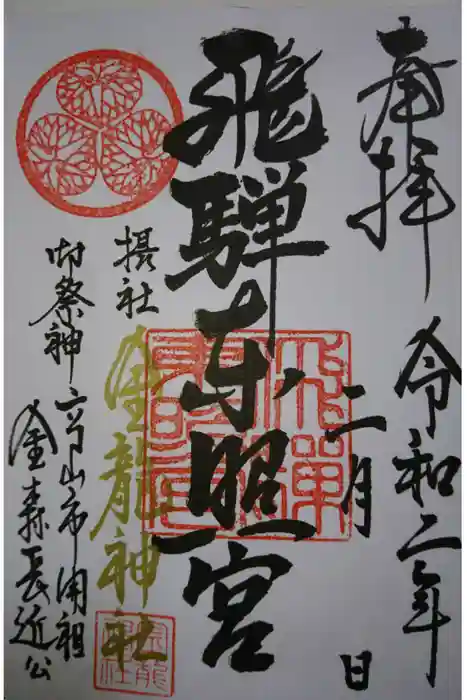 奉拝
令和二年
二月 日
飛騨東照宮
摂社
金龍神社
御祭神 高山市開祖
金森長近公